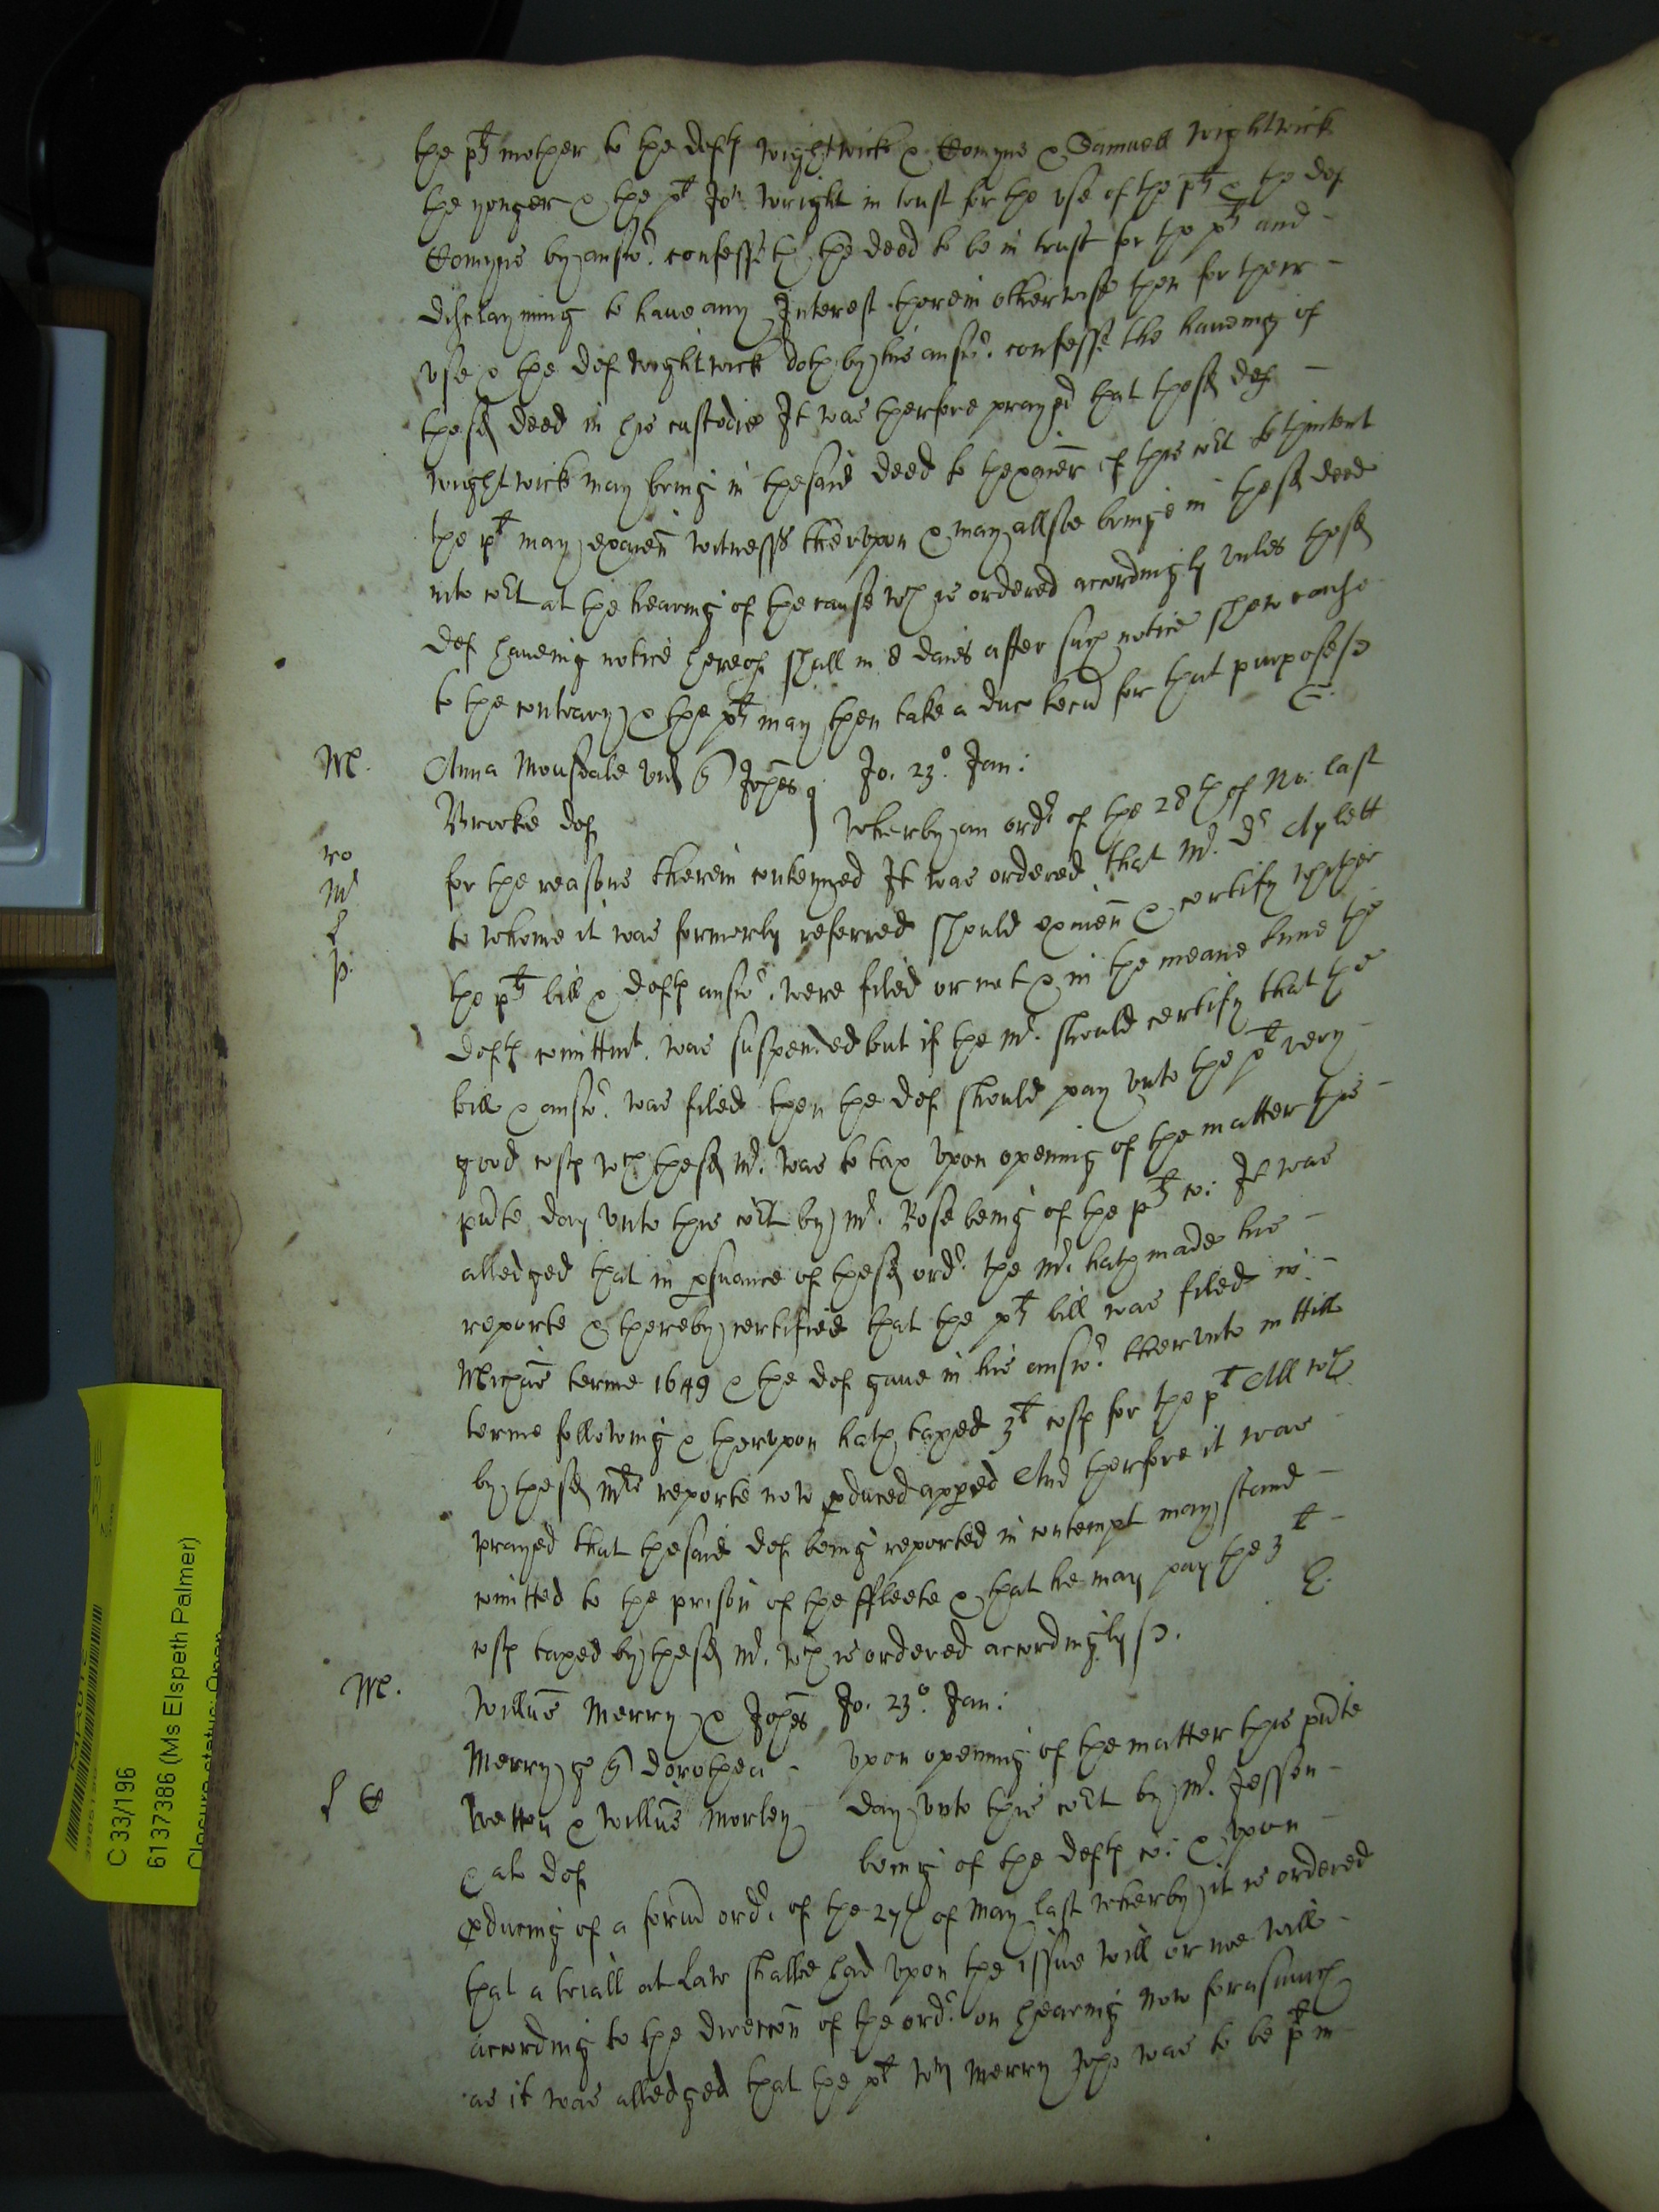 the plts mother to the defts Wightwick & Comyns & Samuell Wightwick
the yonger & the plt Jon Wright in trust for the use of the plts & the def
Comyns by answr. confesseth the deed to be in trust for the plts and -
disclayming to have any Interest therein otherwise then for their -
use & the def Wightwick doth by his answr. confesse the haveing of
the sd deed in his custodie It was therfore prayed that the sd def -
Wightwick may bring in the said deed to the examr of this cort to thintent
the plt may examen witnesses thervpon & may allsoe bringe in the sd deed
into cort at the hearing of the cause wch is ordered accordingly unles the sd
def haveing notice hereof shall in 8 daies after such notice shew cause
to the contrary & the plts may then take a duc tecu for that purpose
Me. Anna Mousdale vid q Johes Jo. 23o. Jan:
Brooke def Wherby an ordr of the 28th of No: last
for the reasons therein conteyned It was ordered that Mr. Dr Aylett
to whome it was formerly referred should examen & certify whether
the plts bill & defts answr. were filed or not & in the meane time the
defts comittmt. was suspended but if the Mr. should certify that the
bill & answr. was filed then the def should pay unto the plt very -
good costs wch the sd Mr. was to tax Upon opening of the matter this -
pnte day unto this cort by Mr. Rose being of the plts co: It was
alledged that in psuance of the sd ordr. the Mr. hath made his -
reporte & thereby certified that the plts bill was filed in -
Michas terme 1649 & the def gave in his answr. therunto in Hill
terme following & thervpon hath taxed 3l costs for the plt All wch
by the sd Mrs reporte now pduced appeared And therfore it was
prayed that the said def being reported in contempt may stand -
comitted to the prison of the ffleete & that he may pay the 3l -
costs taxed by the sd Mr. wch is ordered accordingly
Me. Willus Merry & Johes Jo. 23o. Jan:
Merry q Dorothea - Upon opening of the matter this pnte
Wetton & Willus Morley day unto this cort by Mr. Jesson -
& al def being of the defts co: & upon -
pducing of a former ordr. of the 27th of May last wherby it is ordered
that a triall at Law shalbe had upon the issue will or noe will -
according to the direccon of the ordr. on hearing Now forasmuch
as it was alledged that the plt Wm Merry who was to be plt in
C 33/196
6137386 (Ms Elspeth Palmer)
Closure status: Open